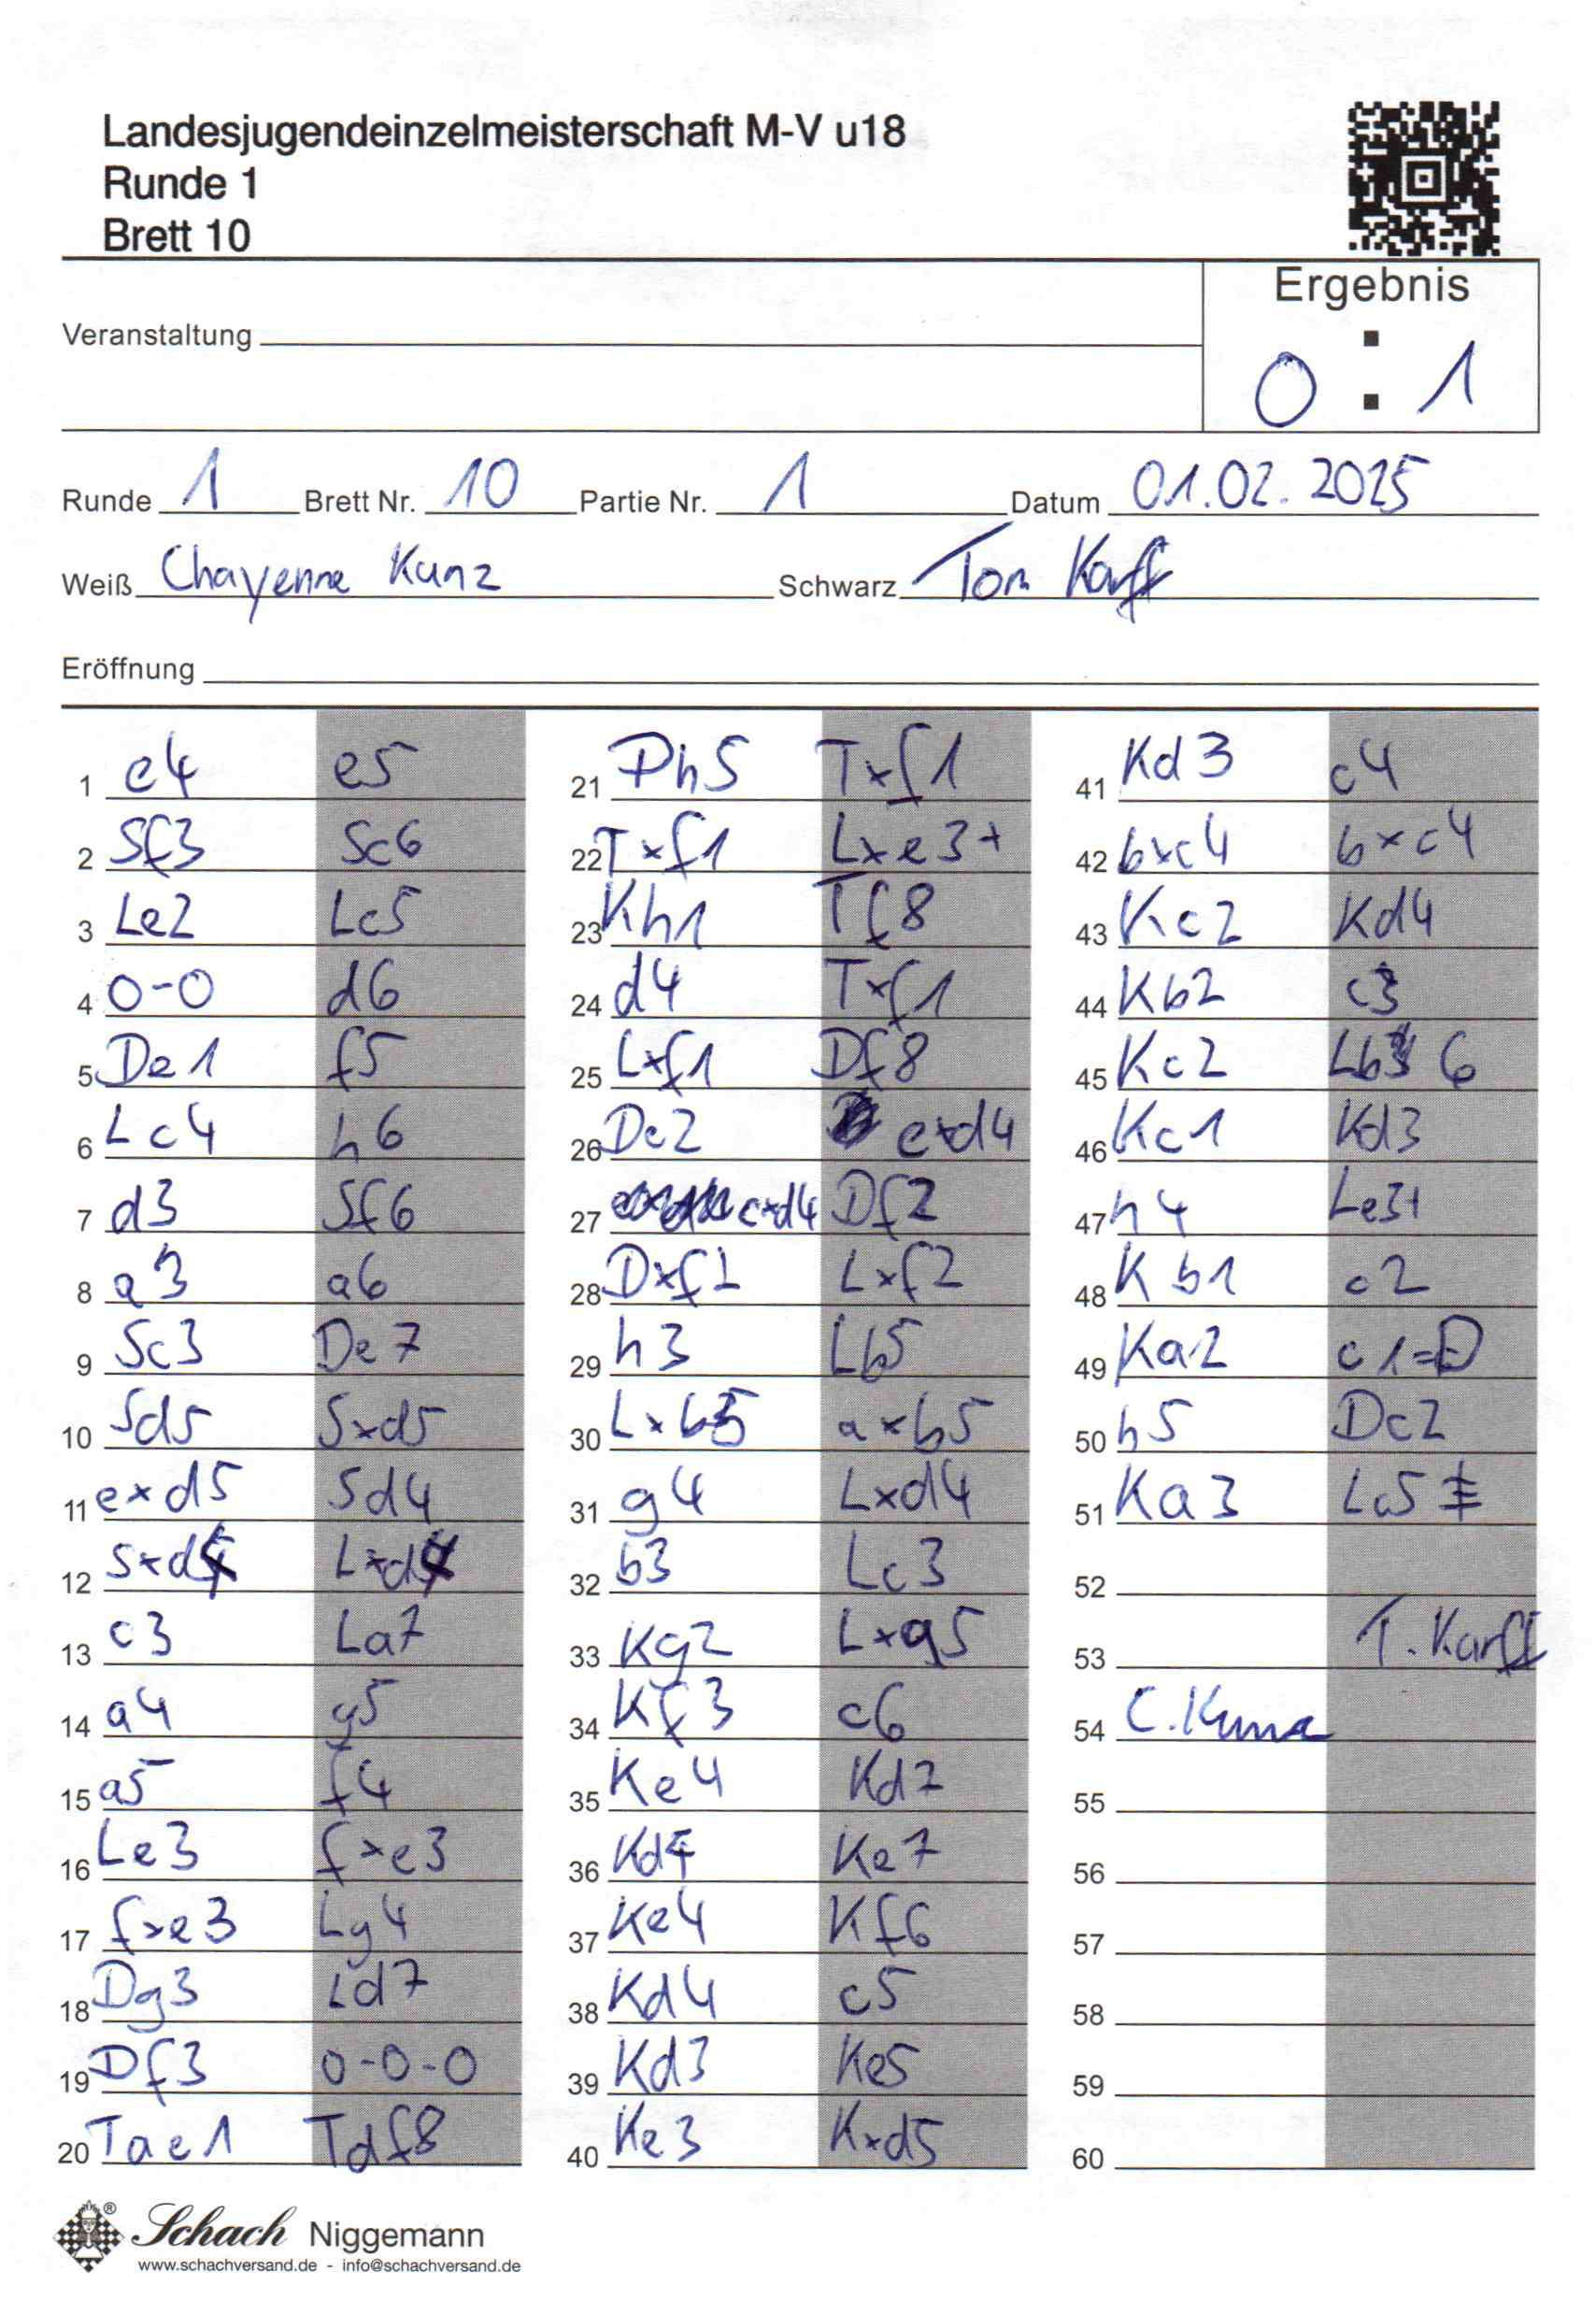 Landesjugendeinzelmeisterschaft M-V u18
Runde 1
Brett 10
Ergebnis
Veranstaltung
0 : 1
Runde 1 Brett Nr. 10 Partie Nr. 1 Datum 01.02.2025
Weiß Chayenne Kunz Schwarz Tom Karff
Eröffnung
1 e4 e5
2 Sf3 Sc6
3 Le2 Lc5
4 0-0 d6
5 De1 f5
6 Lc4 h6
7 d3 Sf6
8 a3 a6
9 Sc3 De7
10 Sd5 Sxd5
11 exd5 Sd4
12 Sxd4 Lxd4
13 c3 La7
14 a4 g5
15 a5 f4
16 Le3 fxe3
17 fxe3 Lg4
18 Dg3 Ld7
19 Df3 0-0-0
20 Tae1 Tdf8
21 Dh5 Txf1
22 Txf1 Lxe3+
23 Kh1 Tf8
24 d4 Txf1
25 Lxf1 Df8
26 De2 exd4
27 cxd4 Df2
28 Dxf2 Lxf2
29 h3 Lb5
30 Lxb5 axb5
31 g4 Lxd4
32 b3 Lc3
33 Kg2 Lxa5
34 Kf3 c6
35 Ke4 Kd7
36 Kd4 Ke7
37 Ke4 Kf6
38 Kd4 c5
39 Kd3 Ke5
40 Ke3 Kxd5
41 Kd3 c4
42 bxc4 bxc4
43 Kc2 Kd4
44 Kb2 c3
45 Kc2 Lb6
46 Kc1 Kd3
47 h4 Le3+
48 Kb1 c2
49 Ka2 c1=D
50 h5 Dc2
51 Ka3 Lc5
52
53 T. Karff
54 C. Kunz
55
56
57
58
59
60
Schach Niggemann
www.schachversand.de - info@schachversand.de